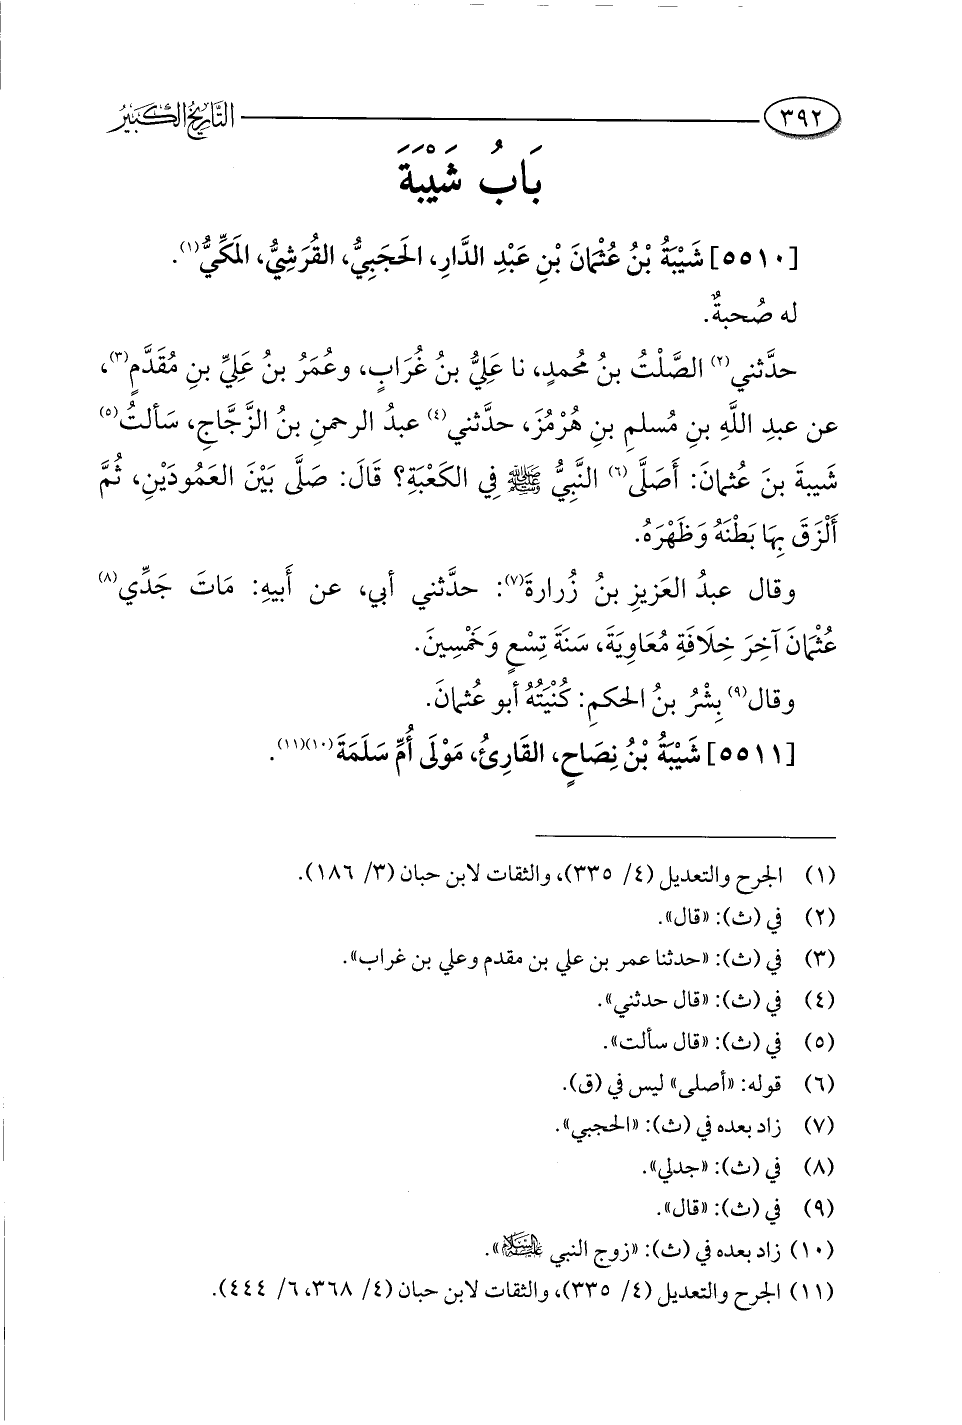 ٣٩٢ التَّارِيخُ الكَبِيرُ
بَابُ شَيْبَةَ
[٥٥١٠] شَيْبَةُ بْنُ عُثْمَانَ بْنِ عَبْدِ الدَّارِ، الحَجَبِيُّ، القُرَشِيُّ، المَكِّيُّ(١).
له صُحبةٌ.
حدَّثني(٢) الصَّلْتُ بنُ مُحمدٍ، نا عَلِيُّ بنُ غُرَابٍ، وعُمَرُ بنُ عَلِيِّ بنِ مُقَدَّمٍ(٣)،
عن عبدِ اللَّهِ بنِ مُسلمِ بنِ هُرْمُزَ، حدَّثني(٤) عبدُ الرحمنِ بنُ الزَّجَّاجِ، سَألتُ(٥)
شَيبةَ بنَ عُثمانَ: أَصَلَّى(٦) النَّبِيُّ ﷺ فِي الكَعْبَةِ؟ قَالَ: صَلَّى بَيْنَ العَمُودَيْنِ، ثُمَّ
أَلْزَقَ بِهَا بَطْنَهُ وَظَهْرَهُ.
وقال عبدُ العَزيزِ بنُ زُرارةَ(٧): حدَّثني أبي، عن أَبيهِ: مَاتَ جَدِّي(٨)
عُثْمَانَ آخِرَ خِلَافَةِ مُعَاوِيَةَ، سَنَةَ تِسْعٍ وَخَمْسِينَ.
وقال(٩) بِشْرُ بنُ الحكمِ: كُنْيَتُهُ أبو عُثمانَ.
[٥٥١١] شَيْبَةُ بْنُ نِصَاحٍ، القَارِئُ، مَوْلَى أُمِّ سَلَمَةَ(١٠)(١١).
(١) الجرح والتعديل (٤/ ٣٣٥)، والثقات لابن حبان (٣/ ١٨٦).
(٢) في (ث): «قال».
(٣) في (ث): «حدثنا عمر بن علي بن مقدم وعلي بن غراب».
(٤) في (ث): «قال حدثني».
(٥) في (ث): «قال سألت».
(٦) قوله: «أصلى» ليس في (ق).
(٧) زاد بعده في (ث): «الحجبي».
(٨) في (ث): «جدلي».
(٩) في (ث): «قال».
(١٠) زاد بعده في (ث): «زوج النبي عليه السلام».
(١١) الجرح والتعديل (٤/ ٣٣٥)، والثقات لابن حبان (٤/ ٣٦٨، ٦/ ٤٤٤).